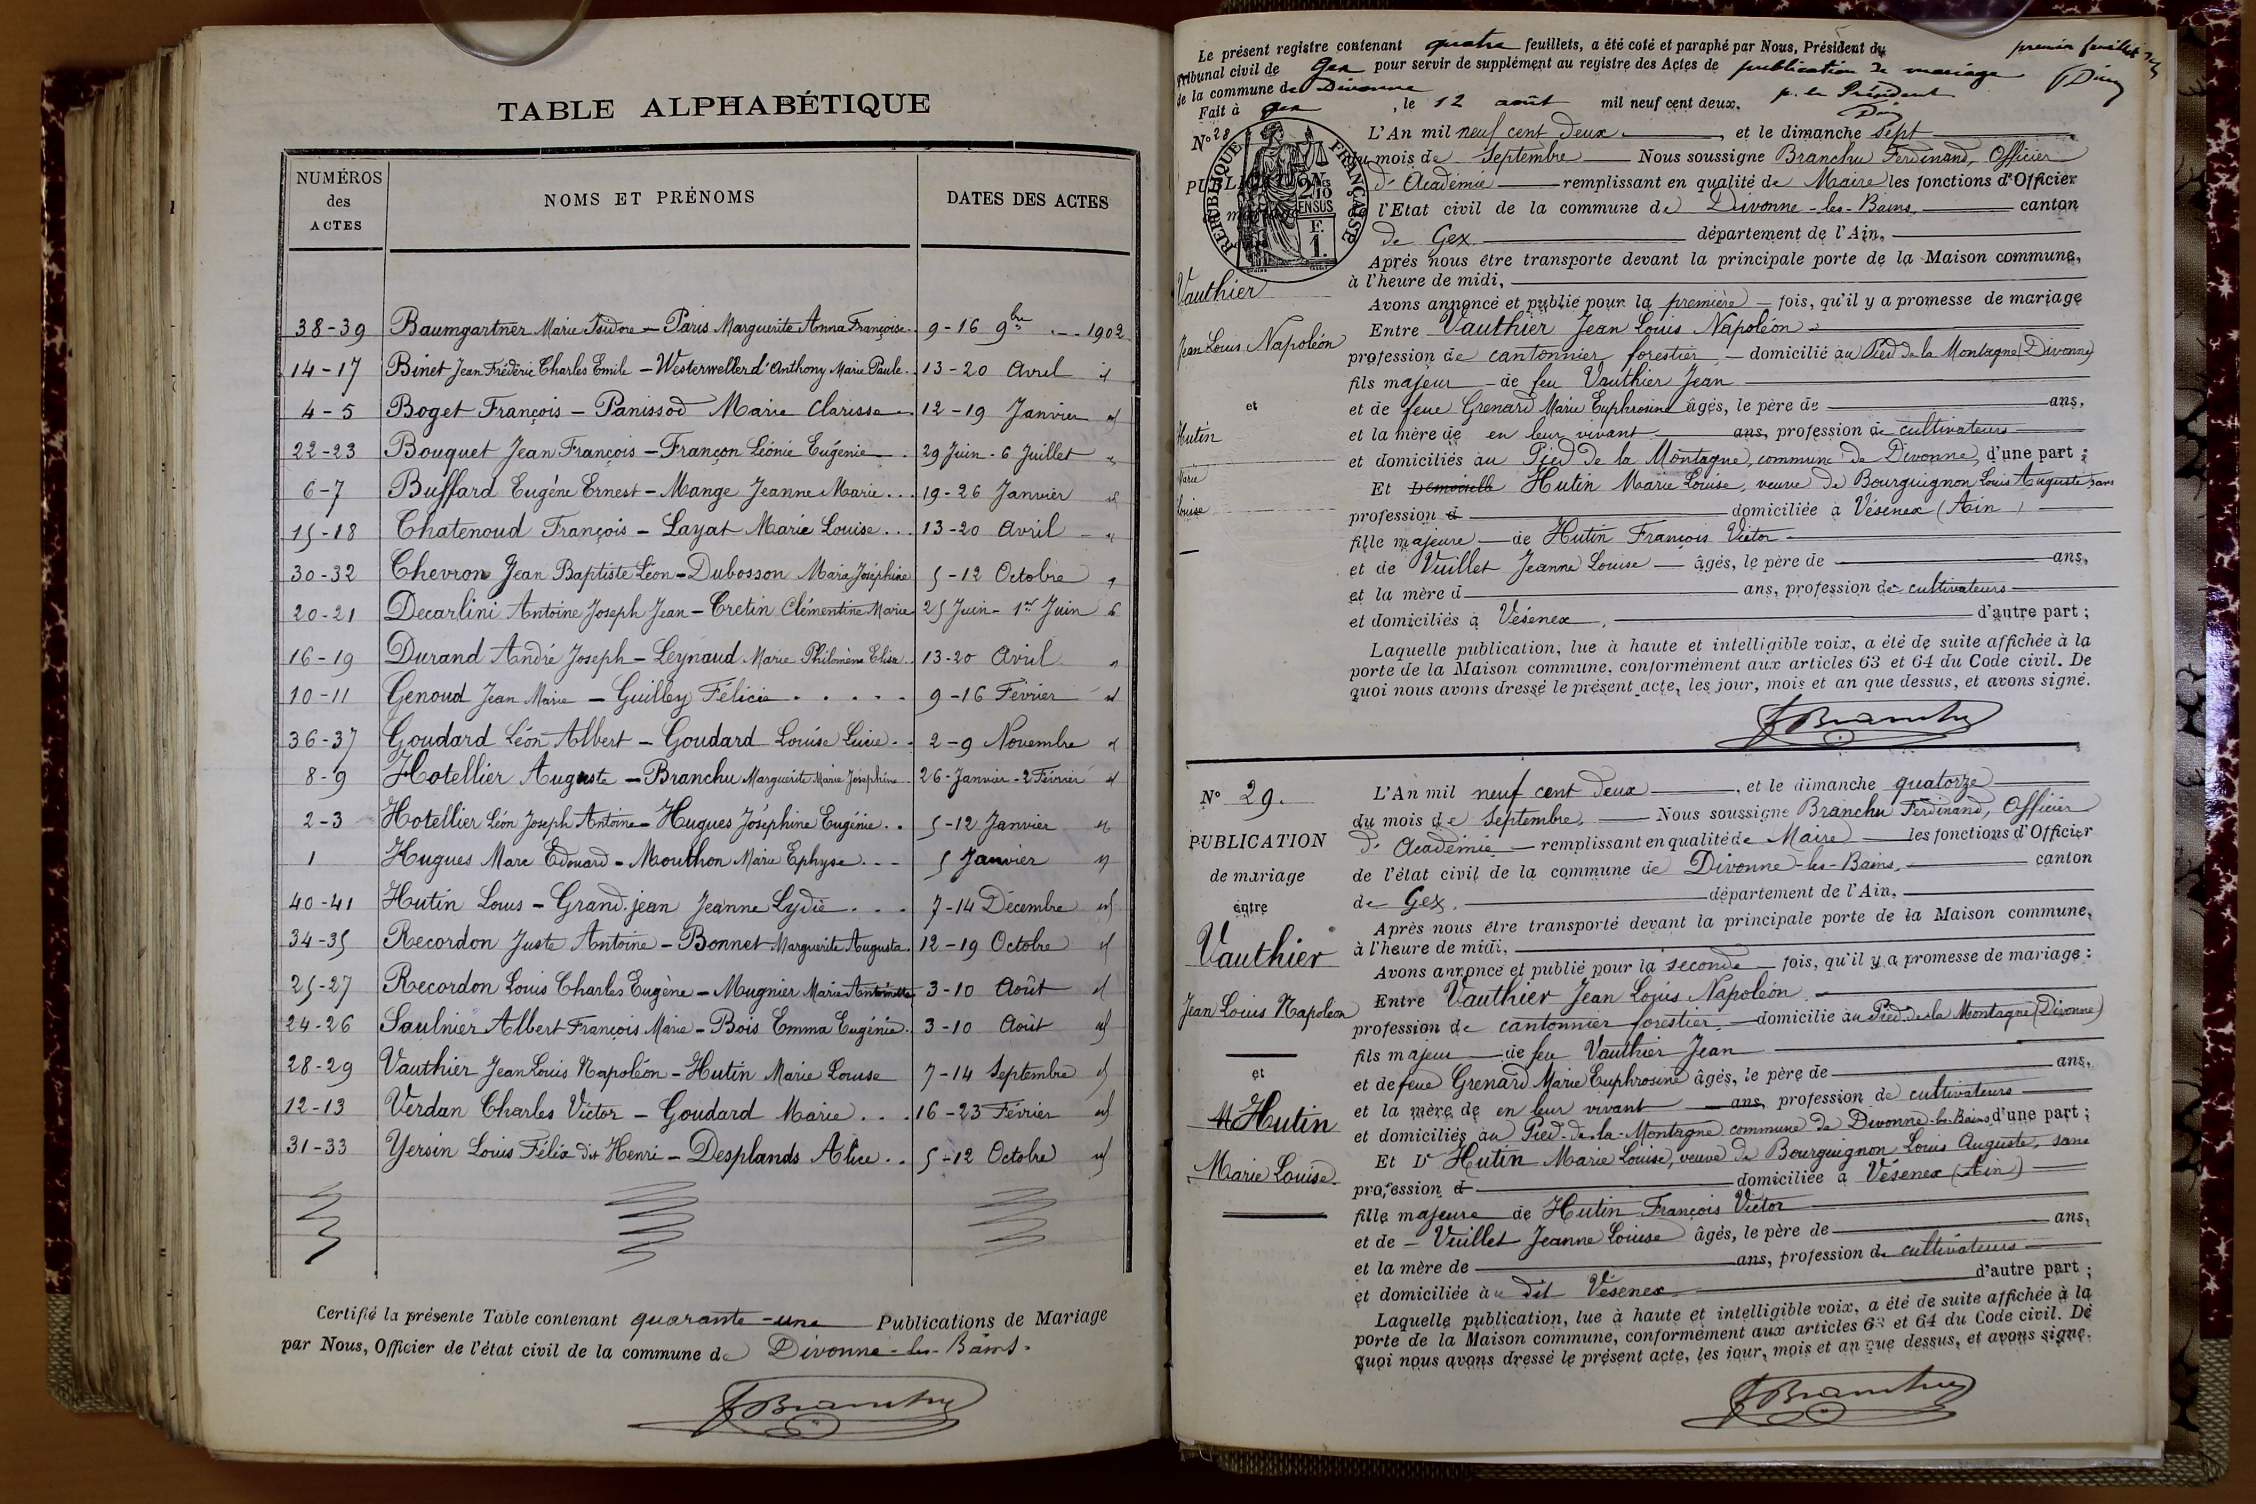 TABLE ALPHABÉTIQUE
NUMÉROS des ACTES
NOMS ET PRÉNOMS
DATES DES ACTES
38-39 Baumgartner Marie Isidore - Paris Marguerite Anna Françoise. 9-16 9bre 1902
14-17 Binet Jean Frédéric Charles Emile - Westerweller d'Anthony Marie Paule. 13-20 Avril
4-5 Boget François - Panissod Marie Clarisse 12-19 Janvier
22-23 Bouquet Jean François - Françon Léonie Eugénie 29 Juin - 6 Juillet
6-7 Buffard Eugène Ernest - Mange Jeanne Marie... 19-26 Janvier
15-18 Chatenoud François - Layat Marie Louise... 13-20 Avril
30-32 Chevron Jean Baptiste Léon - Dubosson Marie Joséphine 5-12 Octobre
20-21 Decarlini Antoine Joseph Jean - Cretin Clémentine Marie 25 Juin - 1er Juin
16-19 Durand André Joseph - Leynaud Marie Philomène Elisa. 13-20 Avril
10-11 Genoud Jean Marie - Guilley Félicie . . . . . 9-16 Février
36-37 Goudard Léon Albert - Goudard Louise Lucie.. 2-9 Novembre
8-9 Hotellier Auguste - Branchu Marguerite Marie Joséphine 26-Janvier-2 Février
2-3 Hotellier Léon Joseph Antoine - Hugues Joséphine Eugénie.. 5-12 Janvier
1 Hugues Marc Edouard - Mouthon Marie Ephyse... 5 Janvier
40-41 Hutin Louis - Grand-jean Jeanne Lydie... 7-14 Décembre
34-35 Recordon Juste Antoine - Bonnet Marguerite Augusta. 12-19 Octobre
25-27 Recordon Louis Charles Eugène - Mugnier Marie Antoinette 3-10 Août
24-26 Saulnier Albert François Marie - Bois Emma Eugénie. 3-10 Août
28-29 Vauthier Jean Louis Napoléon - Hutin Marie Louise 7-14 Septembre
12-13 Verdan Charles Victor - Goudard Marie... 16-23 Février
31-33 Yersin Louis Félix dit Henri - Desplands Alice.. 5-12 Octobre
Certifié la présente Table contenant quarante-une Publications de Mariage
par Nous, Officier de l'état civil de la commune de Divonne-les-Bains.
F Branchu
Le présent registre contenant quatre feuillets, a été coté et paraphé par Nous, Président du
premier feuillet
Tribunal civil de Gex pour servir de supplément au registre des Actes de publication de mariage
de la commune de Divonne
Fait à Gex, le 12 août mil neuf cent deux. p. le Président
No 28
RÉPUBLIQUE FRANÇAISE
2/10 EN SUS
F. 1.
L'An mil neuf cent deux, et le dimanche sept
du mois de septembre Nous soussigné Branchu Ferdinand, Officier
d'Académie remplissant en qualité de Maire les fonctions d'Officier
de l'Etat civil de la commune de Divonne-les-Bains, canton
de Gex département de l'Ain,
Après nous être transporté devant la principale porte de la Maison commune,
à l'heure de midi,
Avons annoncé et publié pour la première fois, qu'il y a promesse de mariage
Vauthier
Jean Louis Napoléon
et
Hutin
Marie
Louise
Entre Vauthier Jean Louis Napoléon
profession de cantonnier forestier domicilié au Pied de la Montagne (Divonne)
fils majeur de feu Vauthier Jean
et de feue Grenard Marie Euphrosine âgés, le père de ans,
et la mère de en leur vivant ans, profession de cultivateurs
et domiciliés au Pied de la Montagne, commune de Divonne, d'une part ;
Et Demoiselle Hutin Marie Louise, veuve de Bourguignon Louis Auguste, sans
profession d domiciliée à Vésenex (Ain)
fille majeure de Hutin François Victor
et de Vuillet Jeanne Louise âgés, le père de ans,
et la mère d ans, profession de cultivateurs
et domiciliés à Vésenex, d'autre part ;
Laquelle publication, lue à haute et intelligible voix, a été de suite affichée à la
porte de la Maison commune, conformément aux articles 63 et 64 du Code civil. De
quoi nous avons dressé le présent acte, les jour, mois et an que dessus, et avons signé.
F Branchu
No 29.
PUBLICATION
de mariage
entre
Vauthier
Jean Louis Napoléon
et
Hutin
Marie Louise.
L'An mil neuf cent deux, et le dimanche quatorze
du mois de septembre, Nous soussigné Branchu Ferdinand, Officier
d'Académie remplissant en qualité de Maire les fonctions d'Officier
de l'état civil de la commune de Divonne-les-Bains, canton
de Gex, département de l'Ain,
Après nous être transporté devant la principale porte de la Maison commune,
à l'heure de midi,
Avons annoncé et publié pour la seconde fois, qu'il y a promesse de mariage :
Entre Vauthier Jean Louis Napoléon
profession de cantonnier forestier domicilié au Pied-de-la Montagne (Divonne)
fils majeur de feu Vauthier Jean
et de feue Grenard Marie Euphrosine âgés, le père de ans,
et la mère de en leur vivant ans, profession de cultivateurs
et domiciliés au Pied-de-la-Montagne commune de Divonne-les-Bains d'une part ;
Et D Hutin Marie Louise, veuve de Bourguignon Louis Auguste, sans
profession d domiciliée à Vésenex (Ain)
fille majeure de Hutin François Victor
et de Vuillet Jeanne Louise âgés, le père de ans,
et la mère de ans, profession de cultivateurs
et domiciliée au dit Vésenex d'autre part ;
Laquelle publication, lue à haute et intelligible voix, a été de suite affichée à la
porte de la Maison commune, conformément aux articles 63 et 64 du Code civil. De
quoi nous avons dressé le présent acte, les jour, mois et an que dessus, et avons signé.
F Branchu